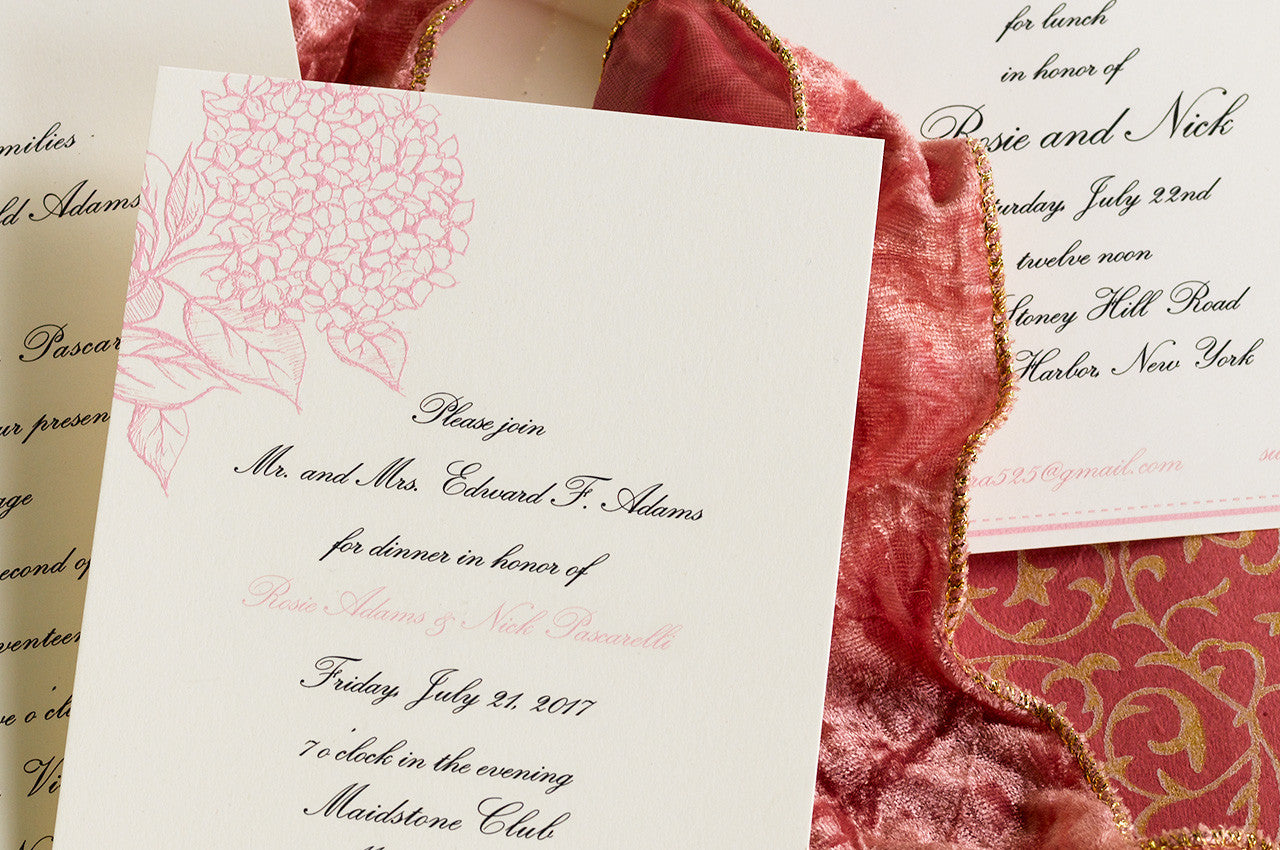 milies
ld Adams
Pascar
ur presen
age
econd of
venteen
ve o'clo
Vi
Please join
Mr. and Mrs. Edward F. Adams
for dinner in honor of
Rosie Adams & Nick Pascarelli
Friday, July 21, 2017
7 o'clock in the evening
Maidstone Club
for lunch
in honor of
Rosie and Nick
turday, July 22nd
twelve noon
Stoney Hill Road
Harbor, New York
ra525@gmail.com
su